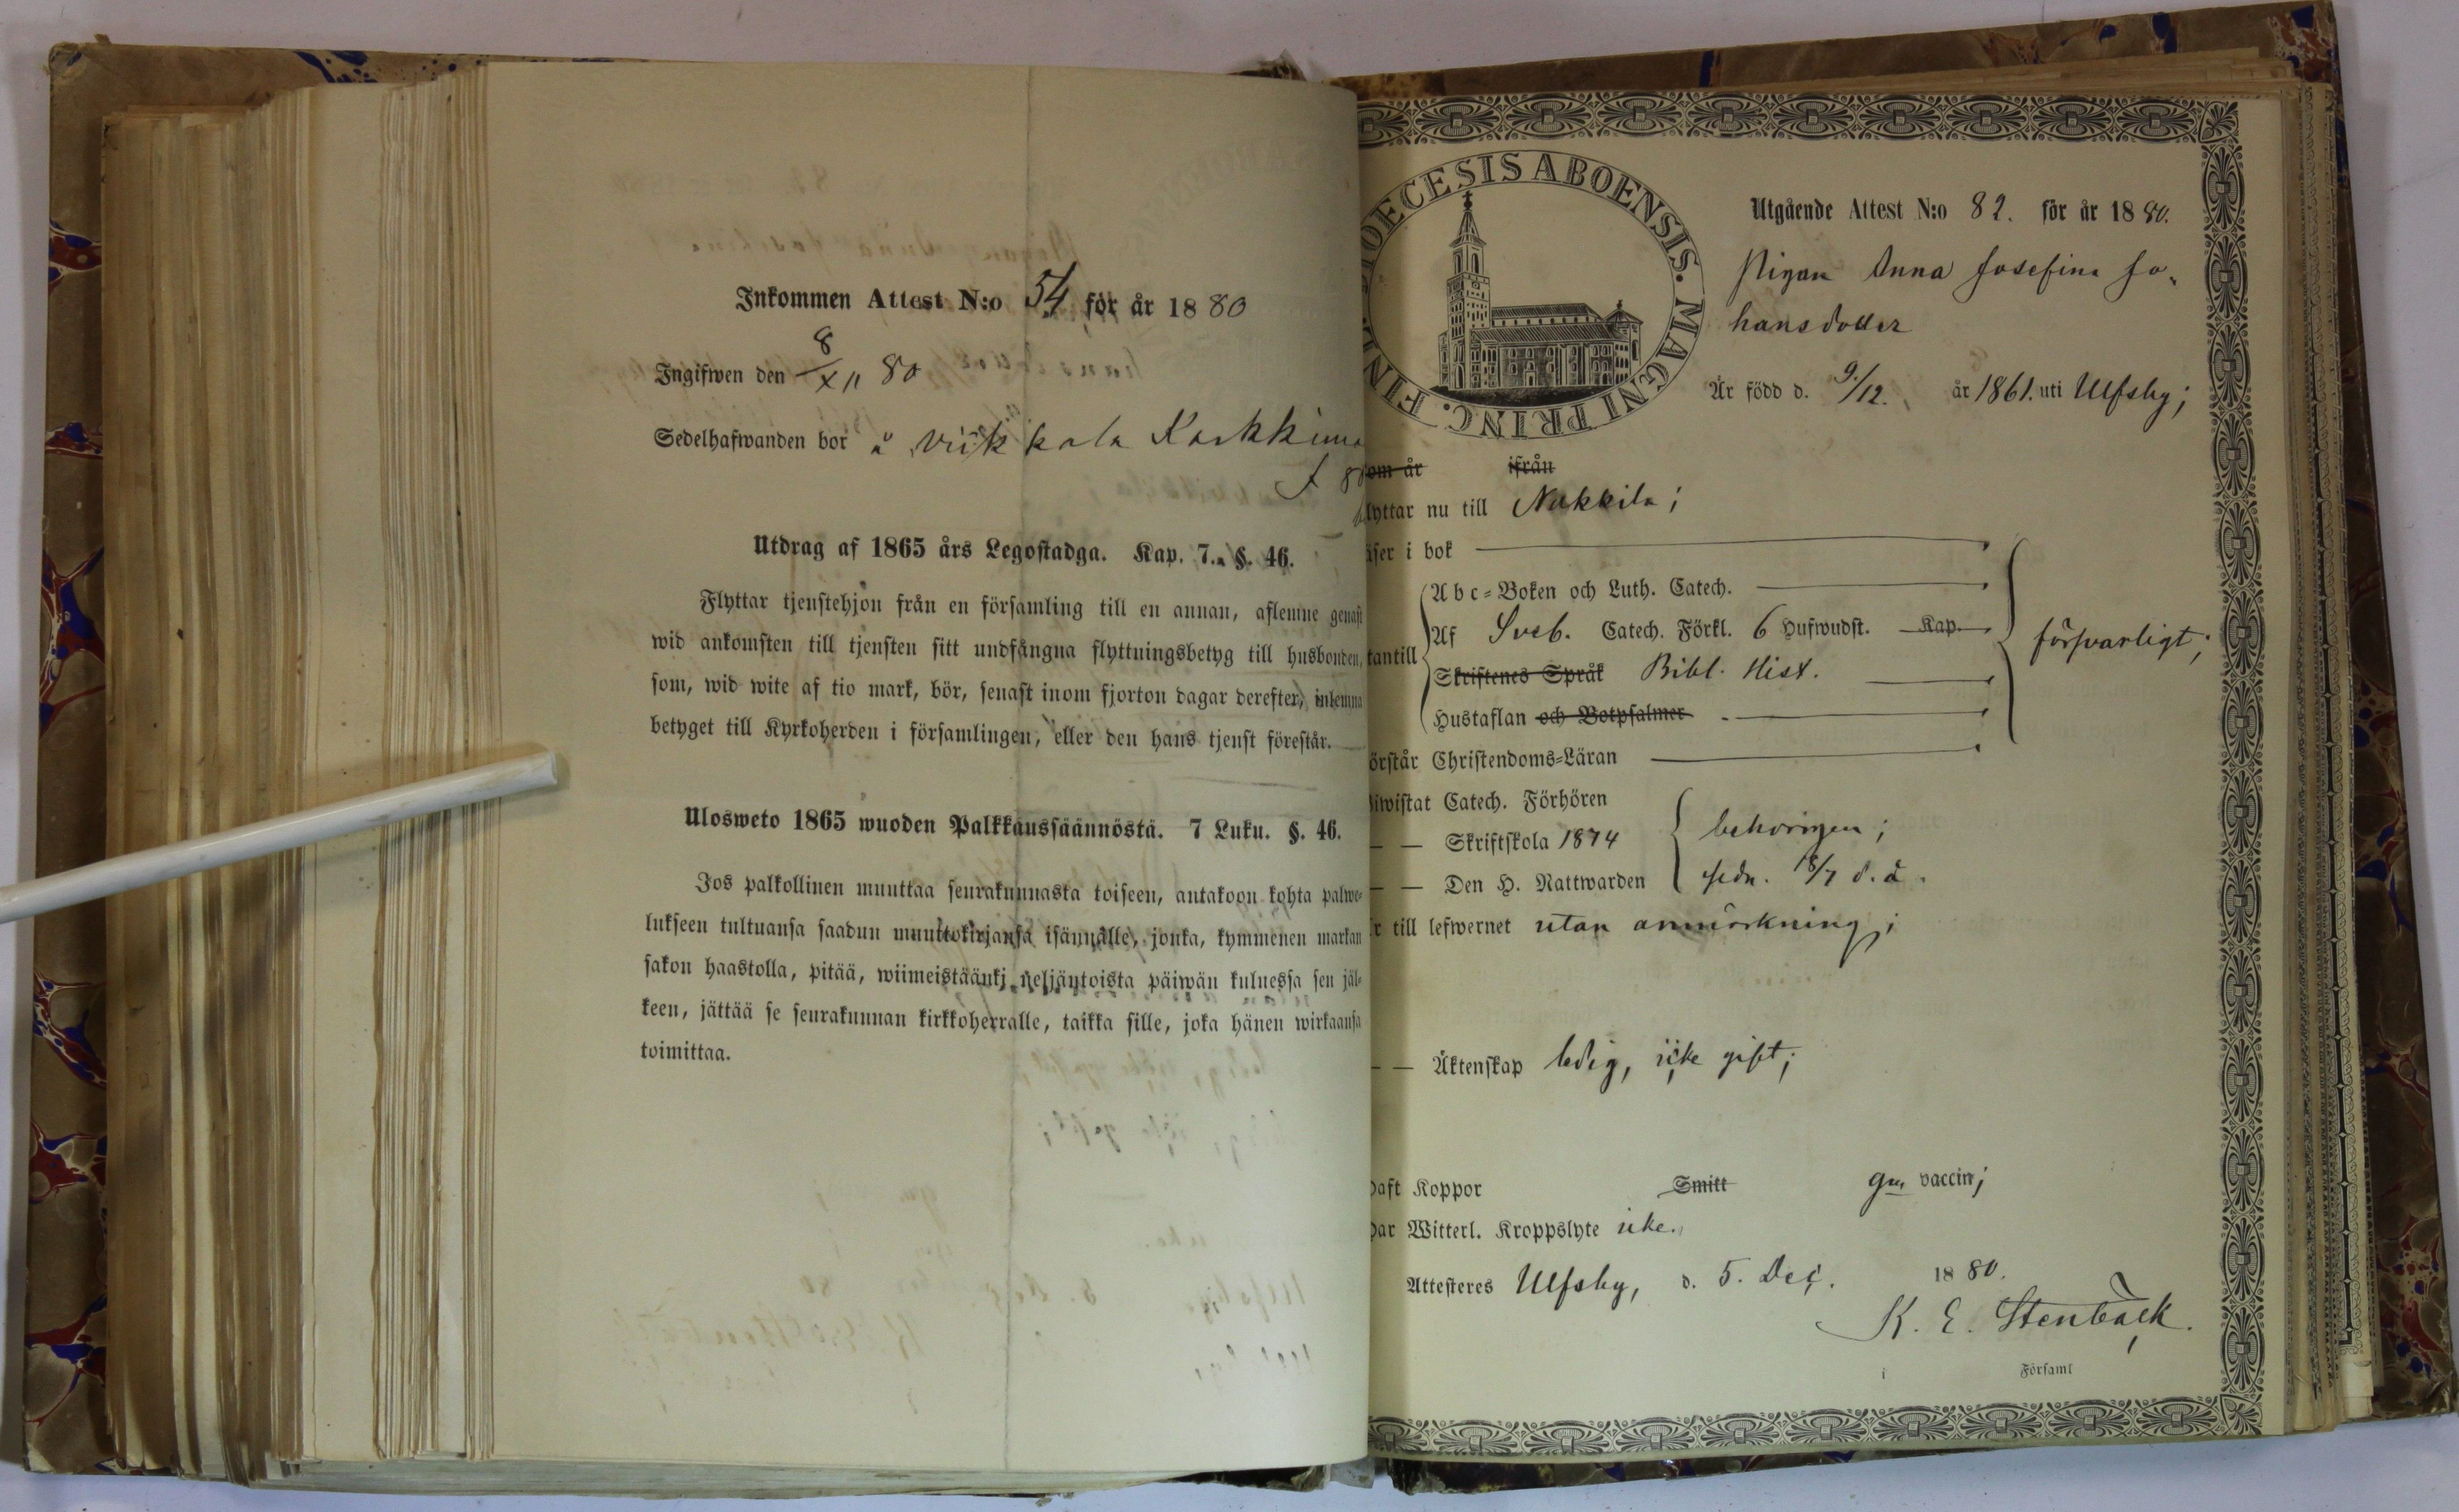 Inkommen Attest N:o 54 för år 1880
Ingifwen den 8/XII 80
Sedelhafwanden bor å Viikkala
Utdrag af 1865 års Legostadga. Kap. 7. §. 46.
Flyttar tjenstehjon från en församling till en annan, aflemne genast
wid ankomsten till tjensten sitt undfångna flyttningsbetyg till husbonden,
som, wid wite af tio mark, bör, senast inom fjorton dagar derefter, inlemna
betyget till Kyrkoherden i församlingen, eller den hans tjenst förestår.
Ulosweto 1865 wuoden Palkkaussäännöstä. 7 Luku. §. 46.
Jos palkollinen muuttaa seurakunnasta toiseen, antakoon kohta palwe-
lukseen tultuansa saadun muuttokirjansa isännälle, jonka, kymmenen markan
sakon haastolla, pitää, wiimeistäänki neljäntoista päiwän kulnessa sen jäl-
keen, jättää se seurakunnan kirkkoherralle, taikka sille, joka hänen wirkaansa
toimittaa.
DIOECESIS ABOENSIS. MAGNI PRINC. FINL
Utgående Attest N:o 82. för år 1880.
Pigan Anna Josefina Jo-
hansdotter
Är född d. 9/12. år 1861. uti Ulfsby;
om år ifrån
lyttar nu till Nakkila;
äser i bok
Abc-Boken och Luth. Catech.
tantill Af Sveb. Catech. Förkl. 6 Hufwudst. Kap. försvarligt;
Skriftenes Språk Bibl. Hist.
Hustaflan och Botpsalmer
örstår Christendoms-Läran
iwistat Catech. Förhören
— — Skriftskola 1874 behörigen;
— — Den H. Nattwarden sedn. 18/7 d. å.
r till lefwernet utan anmärkning;
— — Äktenskap ledig, icke gift;
haft Koppor Smitt gm vaccin;
har Witterl. Kroppslyte icke.
Attesteres Ulfsby, d. 5. Dec. 1880.
K. E. Stenbäck.
i Församl